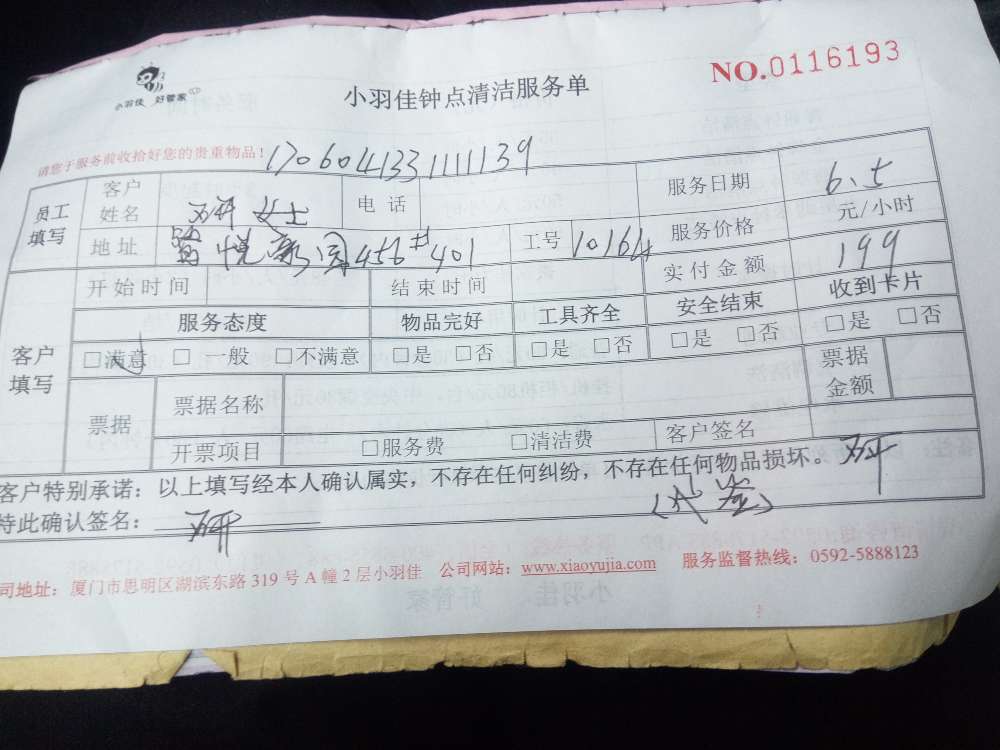 小羽佳 好管家
小羽佳钟点清洁服务单
NO.0116193
请您于服务前收拾好您的贵重物品!
1706041331111139
员工填写 客户姓名 研女士 电话 服务日期 6.5
地址 悦新园456#401 工号 10164 服务价格 元/小时
开始时间 结束时间 实付金额 199
客户填写 服务态度 物品完好 工具齐全 安全结束 收到卡片
□满意 □一般 □不满意 □是 □否 □是 □否 □是 □否 □是 □否
票据 票据名称 票据金额
开票项目 □服务费 □清洁费 客户签名
客户特别承诺：以上填写经本人确认属实，不存在任何纠纷，不存在任何物品损坏。
特此确认签名：
(代签)
司地址：厦门市思明区湖滨东路319号A幢2层小羽佳 公司网站：www.xiaoyujia.com 服务监督热线：0592-5888123